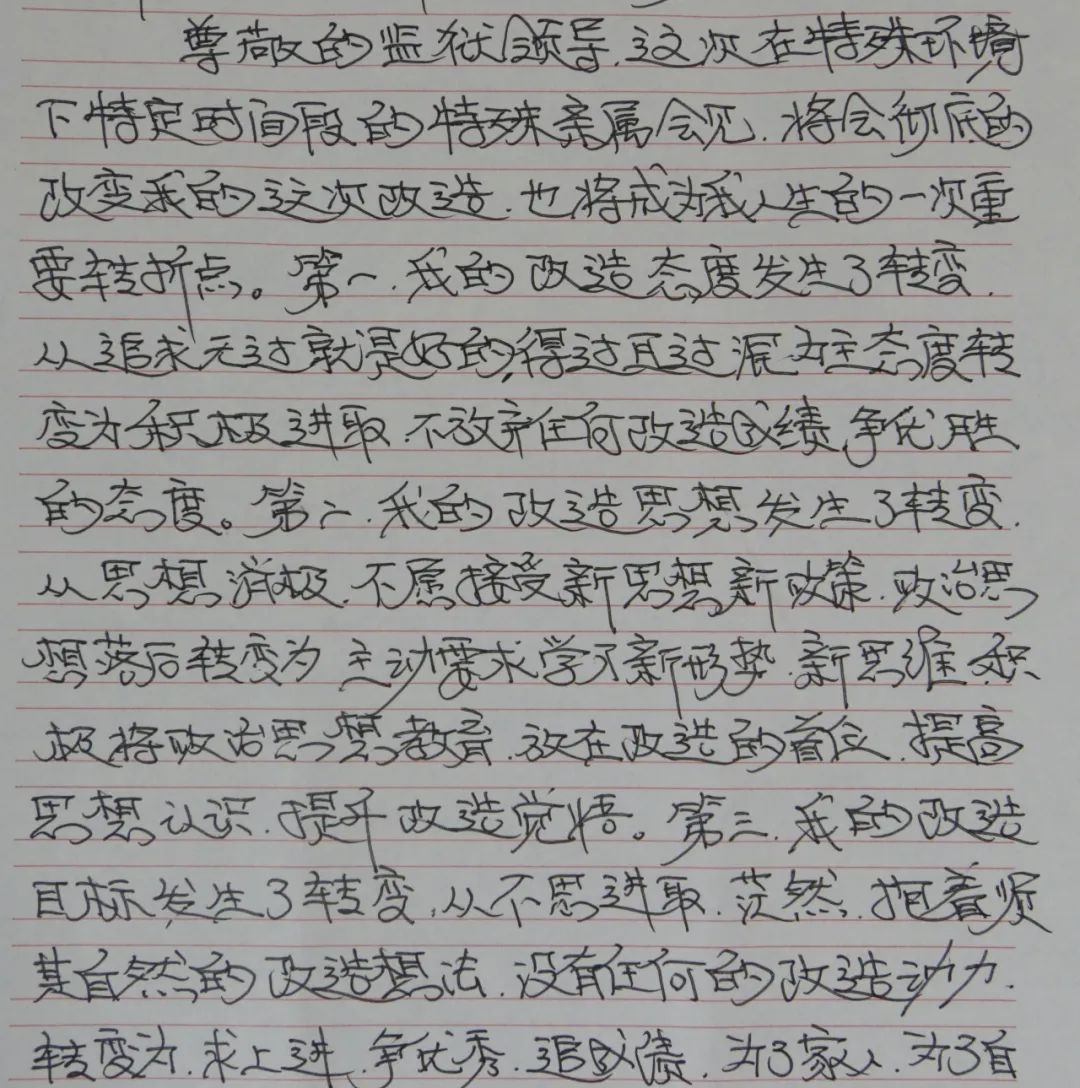 尊敬的监狱领导,这次在特殊环境
下特定时间段的特殊亲属会见,将会彻底的
改变我的这次改造,也将成为我人生的一次重
要转折点。第一,我的改造态度发生了转变,
从追求无过就是好的,得过且过混为主态度转
变为积极进取,不放弃任何改造成绩,争优胜
的态度。第二,我的改造思想发生了转变,
从思想消极,不愿接受新思想新政策,政治思
想落后转变为主动要求学习新形势,新思维,积
极将政治思想教育,放在改造的首位,提高
思想认识,提升改造觉悟。第三,我的改造
目标发生了转变,从不思进取,茫然,抱着顺
其自然的改造想法,没有任何的改造动力,
转变为,求上进,争优秀,追成绩,为了家人,为了自